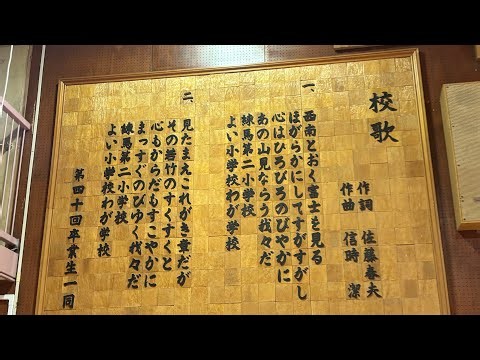 校歌
作詞 佐藤春夫
作曲 信時 潔
一、西南とおく富士を見る
ほがらかにしてすがすがし
心はひろびろのびやかに
あの山見ならう我々だ
練馬第二小学校
よい小学校わが学校
二、見たま丸これがき章だが
その若竹のすくすくと
心もからだもすこやかに
まっすぐのびゆく我々だ
練馬第二小学校
よい小学校わが学校
第四十回卒業生一同